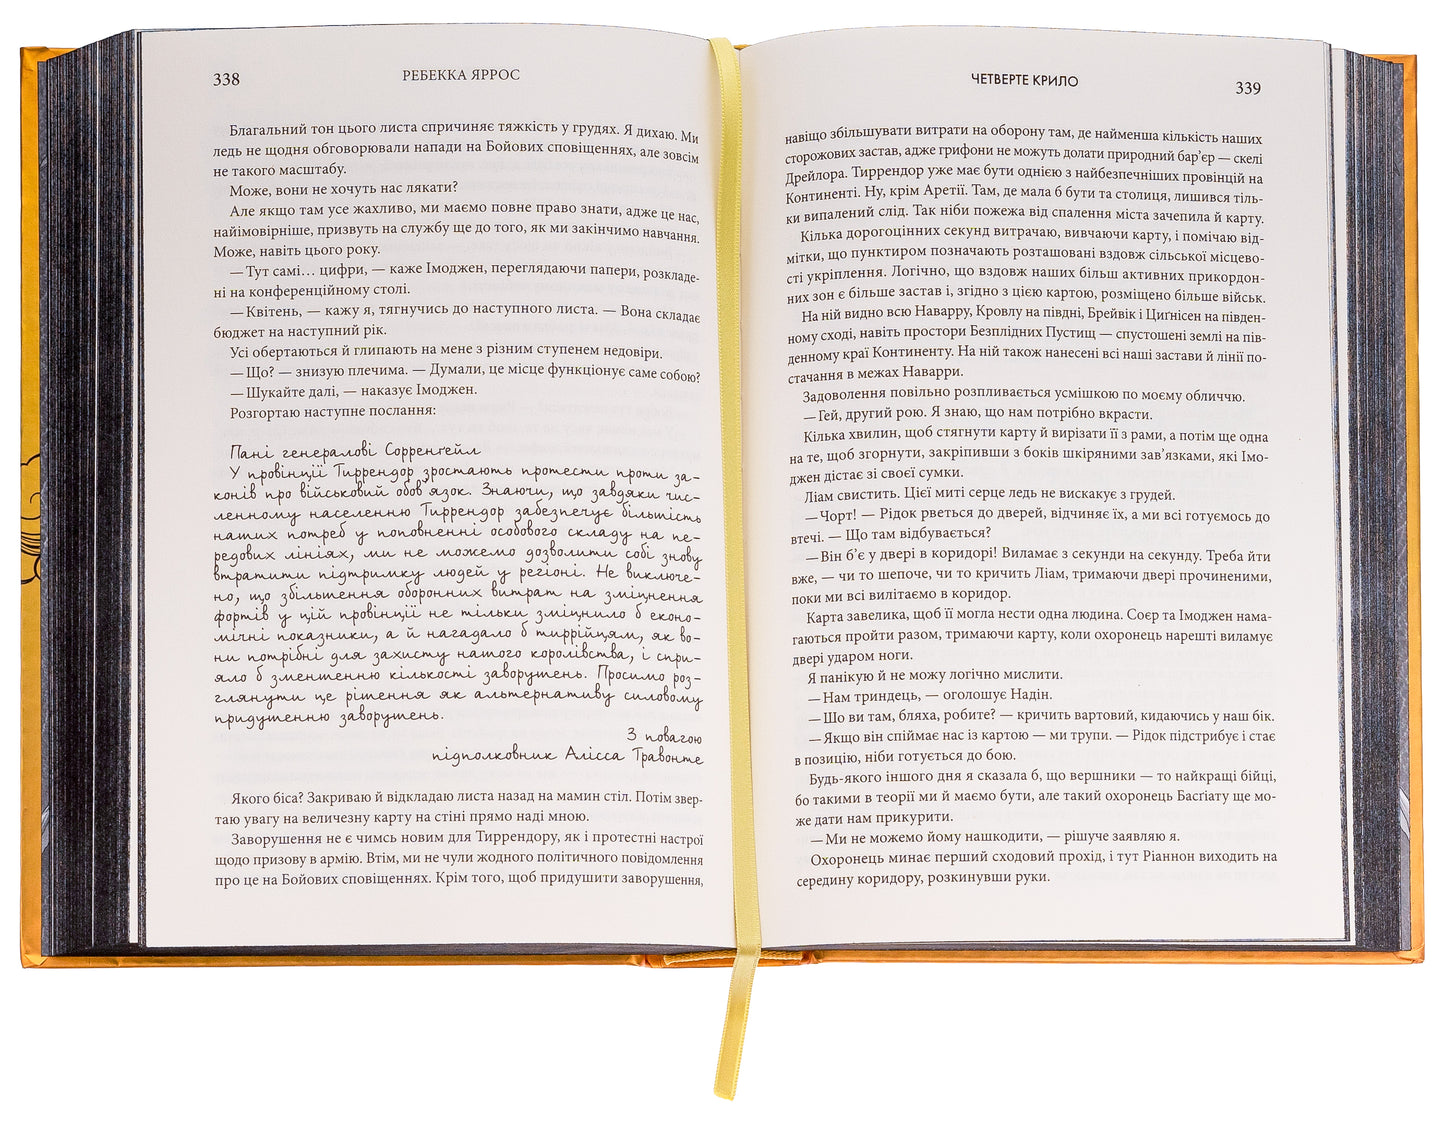 338
РЕБЕККА ЯРРОС
Благальний тон цього листа спричиняє тяжкість у грудях. Я дихаю. Ми
ледь не щодня обговорювали напади на Бойових сповіщеннях, але зовсім
не такого масштабу.
Може, вони не хочуть нас лякати?
Але якщо там усе жахливо, ми маємо повне право знати, адже це нас,
найімовірніше, призвуть на службу ще до того, як ми закінчимо навчання.
Може, навіть цього року.
— Тут самі… цифри, — каже Імоджен, переглядаючи папери, розкладе-
ні на конференційному столі.
— Квітень, — кажу я, тягнучись до наступного листа. — Вона складає
бюджет на наступний рік.
Усі обертаються й глипають на мене з різним ступенем недовіри.
— Що? — знизую плечима. — Думали, це місце функціонує саме собою?
— Шукайте далі, — наказує Імоджен.
Розгортаю наступне послання:
Пані генералові Сорренґейл
У провінції Тиррендор зростають протести проти за-
конів про військовий обов'язок. Знаючи, що завдяки чис-
ленному населенню Тиррендор забезпечує більшість
наших потреб у поповненні особового складу на пе-
редових лініях, ми не можемо дозволити собі знову
втратити підтримку людей у регіоні. Не виключе-
но, що збільшення оборонних витрат на зміцнення
фортів у цій провінції не тільки зміцнило б еконо-
мічні показники, а й нагадало б тиррійцям, як во-
ни потрібні для захисту нашого королівства, і спри-
яло б зменшенню кількості заворушень. Просимо роз-
глянути це рішення як альтернативу силовому
придушенню заворушень.
З повагою
підполковник Алісса Травонте
Якого біса? Закриваю й відкладаю листа назад на мамин стіл. Потім звер-
таю увагу на величезну карту на стіні прямо наді мною.
Заворушення не є чимсь новим для Тиррендору, як і протестні настрої
щодо призову в армію. Втім, ми не чули жодного політичного повідомлення
про це на Бойових сповіщеннях. Крім того, щоб придушити заворушення,
ЧЕТВЕРТЕ КРИЛО
339
навіщо збільшувати витрати на оборону там, де найменша кількість наших
сторожових застав, адже грифони не можуть долати природний бар'єр — скелі
Дрейлора. Тиррендор уже має бути однією з найбезпечніших провінцій на
Континенті. Ну, крім Аретії. Там, де мала б бути та столиця, лишився тіль-
ки випалений слід. Так ніби пожежа від спалення міста зачепила й карту.
Кілька дорогоцінних секунд витрачаю, вивчаючи карту, і помічаю від-
мітки, що пунктиром позначають розташовані вздовж сільської місцево-
сті укріплення. Логічно, що вздовж наших більш активних прикордон-
них зон є більше застав і, згідно з цією картою, розміщено більше військ.
На ній видно всю Наварру, Кровлу на півдні, Брейвік і Циґнісен на півден-
ному сході, навіть простори Безплідних Пустищ — спустошені землі на пів-
денному краї Континенту. На ній також нанесені всі наші застави й лінії по-
стачання в межах Наварри.
Задоволення повільно розпливається усмішкою по моєму обличчю.
— Гей, другий рою. Я знаю, що нам потрібно вкрасти.
Кілька хвилин, щоб стягнути карту й вирізати її з рами, а потім ще одна
на те, щоб згорнути, закріпивши з боків шкіряними зав'язками, які Імо-
джен дістає зі своєї сумки.
Ліам свистить. Цієї миті серце ледь не вискакує з грудей.
— Чорт! — Рідок рветься до дверей, відчиняє їх, а ми всі готуємось до
втечі. — Що там відбувається?
— Він б'є у двері в коридорі! Виламає з секунди на секунду. Треба йти
вже, — чи то шепоче, чи то кричить Ліам, тримаючи двері прочиненими,
поки ми всі вилітаємо в коридор.
Карта завелика, щоб її могла нести одна людина. Соєр та Імоджен нама-
гаються пройти разом, тримаючи карту, коли охоронець нарешті виламує
двері ударом ноги.
Я панікую й не можу логічно мислити.
— Нам триндець, — оголошує Надін.
— Шо ви там, бляха, робите? — кричить вартовий, кидаючись у наш бік.
— Якщо він спіймає нас із картою — ми трупи. — Рідок підстрибує і стає
в позицію, ніби готується до бою.
Будь-якого іншого дня я сказала б, що вершники — то найкращі бійці,
бо такими в теорії ми й маємо бути, але такий охоронець Басґіату ще мо-
же дати нам прикурити.
— Ми не можемо йому нашкодити, — рішуче заявляю я.
Охоронець минає перший сходовий прохід, і тут Ріаннон виходить на
середину коридору, розкинувши руки.